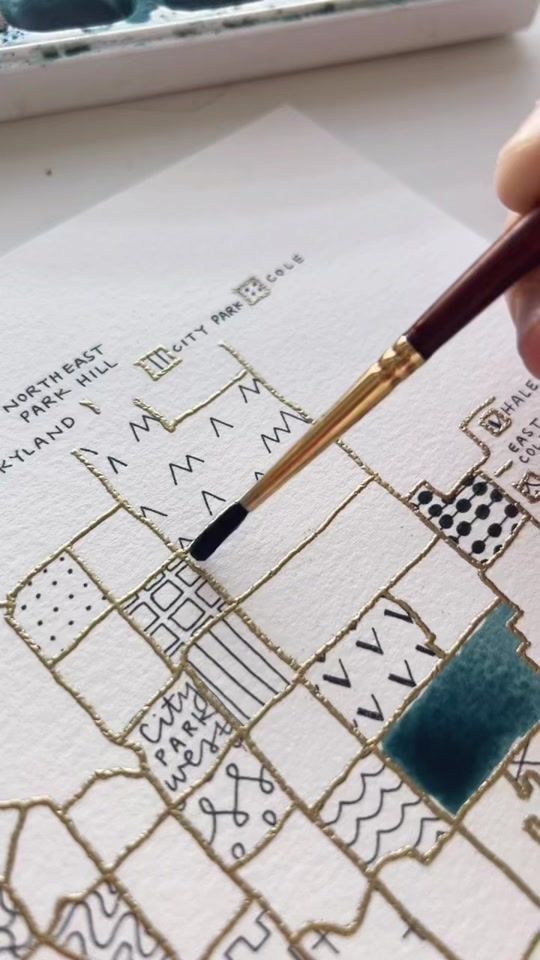 COLE
CITY PARK
NORTHEAST
PARK HILL
KYLAND
HALE
EAST
COL
City
PARK
West